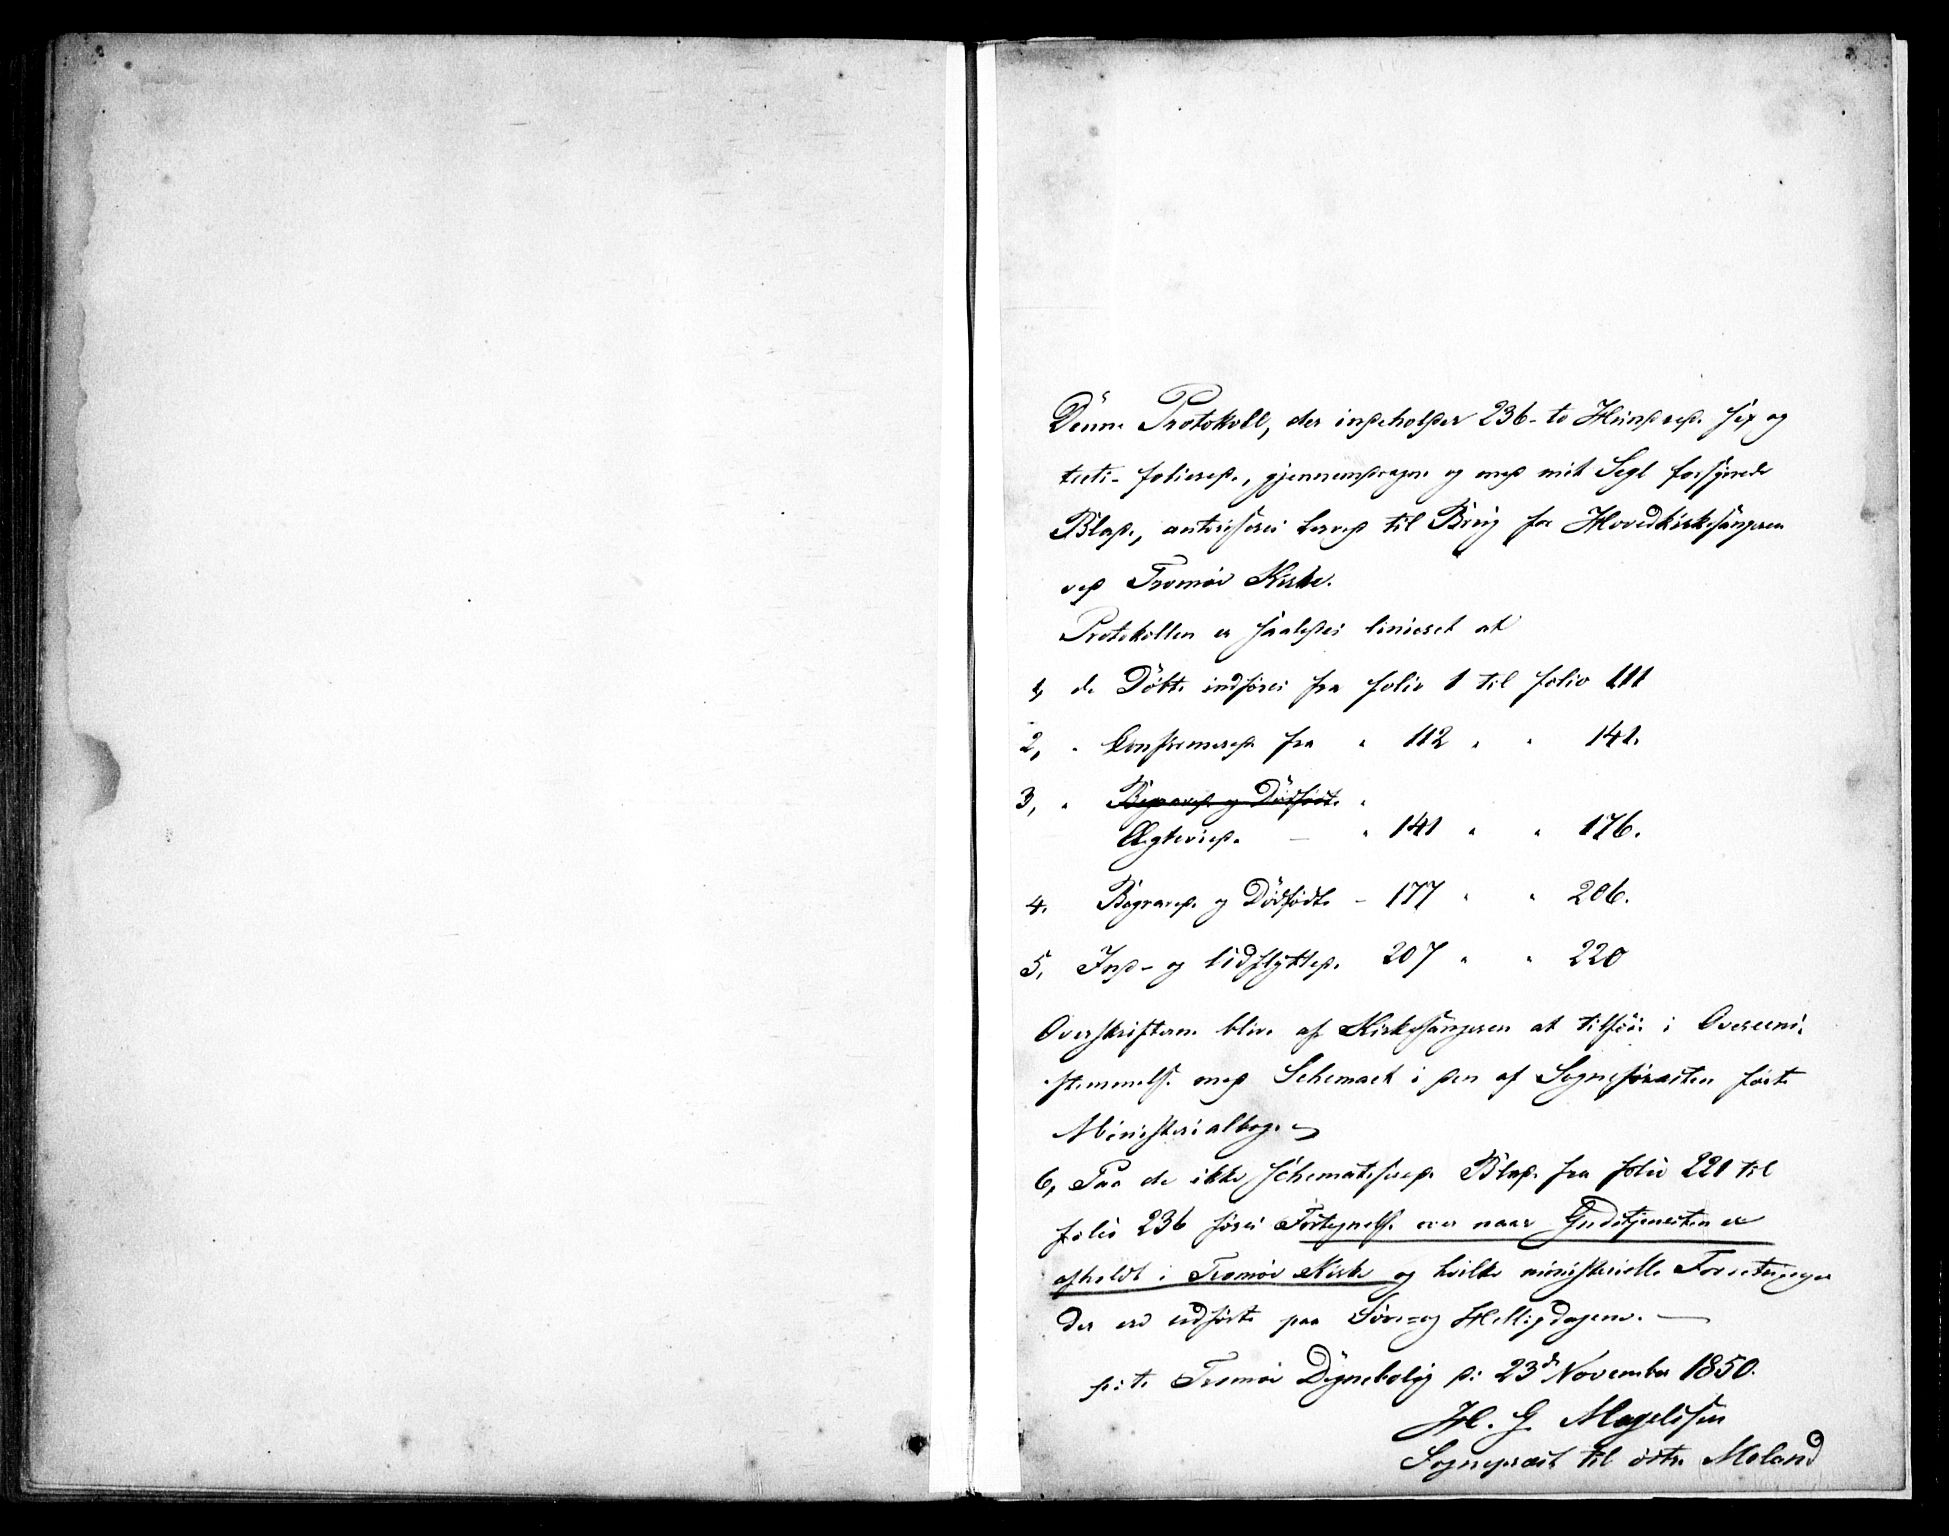 Denne Protokoll, der indeholder 236 - to Hundrede sex og
treti - folierede, gjennemdragne og med mit Segl forsynede
Blade, autoriseres herved til Brug for Hovedkirkesangeren
ved Tromøe Kirke.
Protokollen er saaledes linieret at
1, de Døbte indføres fra folio 1 til folio 111
2, " Confirmerede fra " 112 " " 141.
3, " Begravede og Dødfødte "
Ægteviede — " 141 " " 176.
4. Begravede og Dødfødte - 177 " " 206.
5. Ind- og Udflyttede. 207 " " 220
Overskrifterne blive af Kirkesangeren at tilføie i Overeens-
stemmelse med Schemaet i den af Sognepræsten førte
Ministerialbog.
6, Paa de ikke schematiserede Blade fra folio 221 til
folio 236 føres Fortegnelse over naar Gudstjenesten er
afholdt i Tromøe Kirke og hvilke ministerielle Forretninger
der ere udførte paa Søn- og Helligdagene. —
Tromøe Degnebolig d: 23d November 1850.
H. G Magelssen
Sognepræst til østre Moland